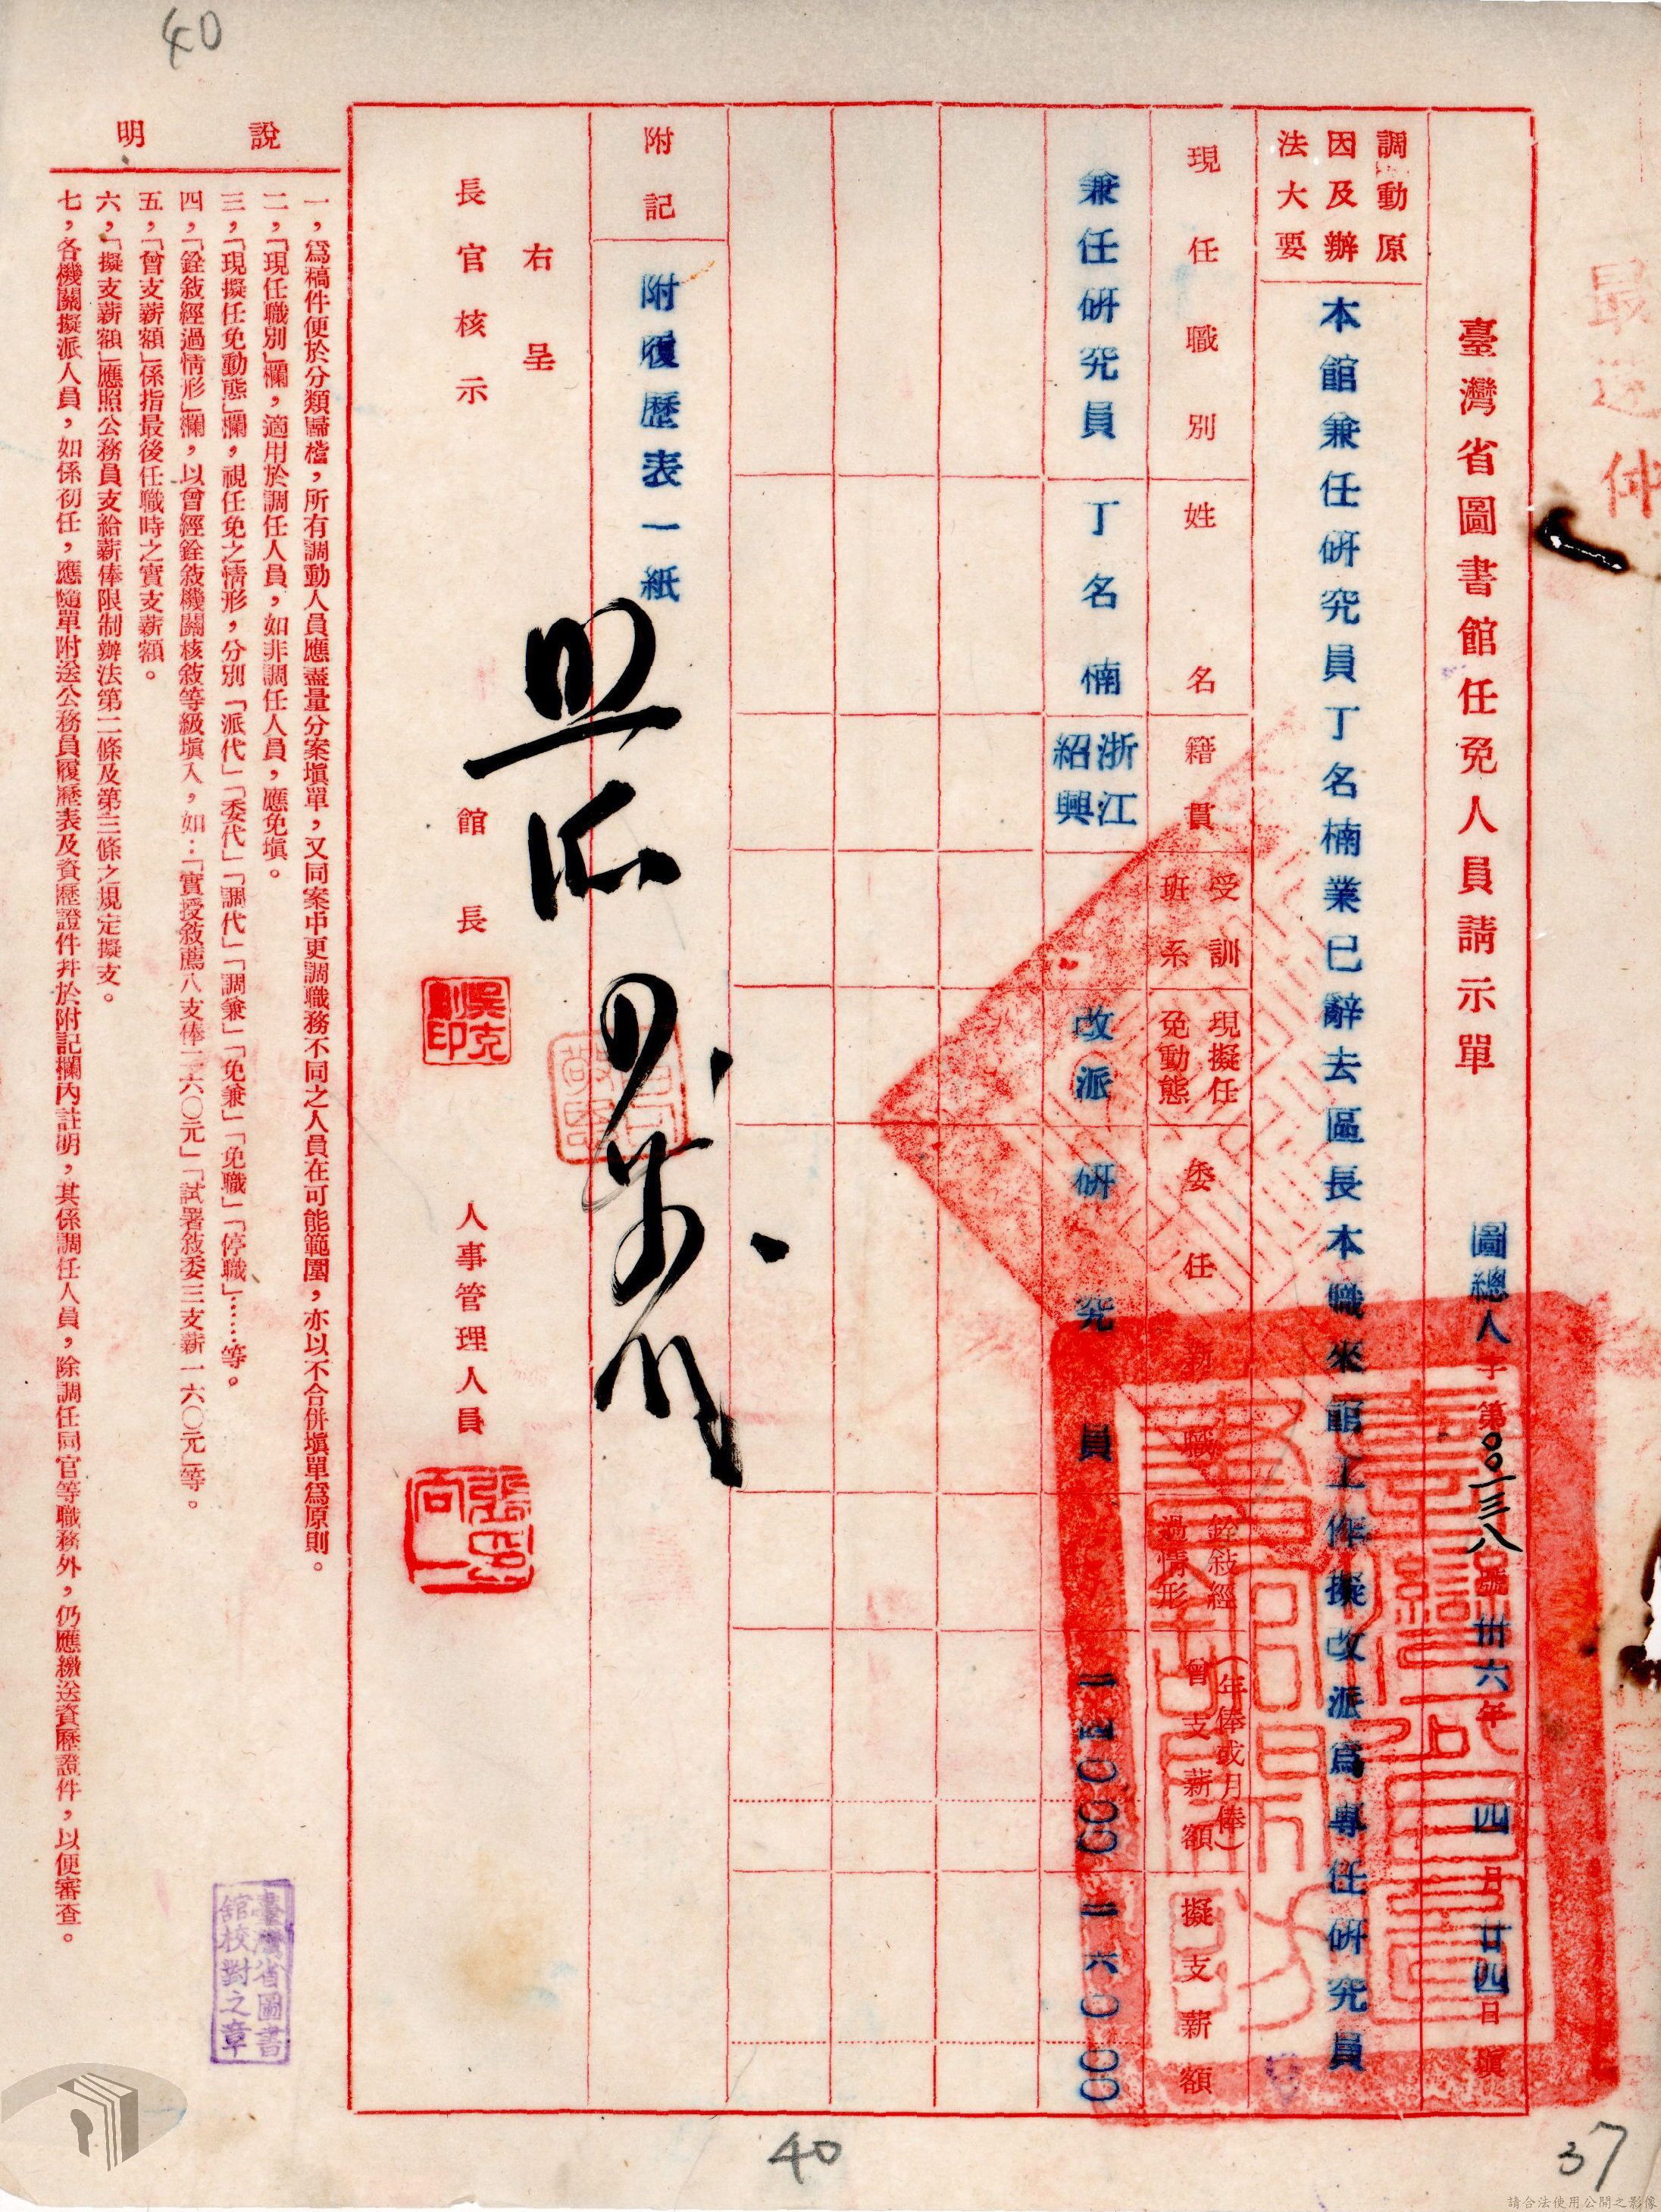 40
最速件
臺灣省圖書館任免人員請示單
圖總人字第〇〇一三八號 卅六年四月廿四日填
調動原因及辦法大要
本館兼任研究員丁名楠業已辭去區長本職來館工作擬改派為專任研究員
現任職別
姓名
籍貫
受訓班系
現擬任免動態
委任新職
銓敘經過情形
曾支薪額（年俸或月俸）
擬支薪額
兼任研究員
丁名楠
浙江紹興
改派
研究員
二六〇〇〇
附記
附履歷表一紙
右呈
長官核示
館長
吳克剛印
人事管理人員
說明
一，為稿件便於分類歸檔，所有調動人員應盡量分案填單，又同案中更調職務不同之人員在可能範圍，亦以不合併填單為原則。
二，「現任職別」欄，適用於調任人員，如非調任人員，應免填。
三，「現擬任免動態」欄，視任免之情形，分別「派代」「委代」「調代」「調兼」「免兼」「免職」「停職」……等。
四，「銓敘經過情形」欄，以曾經銓敘機關核敘等級填入，如：「實授敘薦八支俸二六〇元」「試署敘委三支薪一六〇元」等。
五，「曾支薪額」係指最後任職時之實支薪額。
六，「擬支薪額」應照公務員支給薪俸限制辦法第二條及第三條之規定擬支。
七，各機關擬派人員，如係初任，應隨單附送公務員履歷表及資歷證件幷於附記欄內註明，其係調任人員，除調任同官等職務外，仍應繳送資歷證件，以便審查。
臺灣省圖書館校對之章
40
37
請合法使用公開之影像